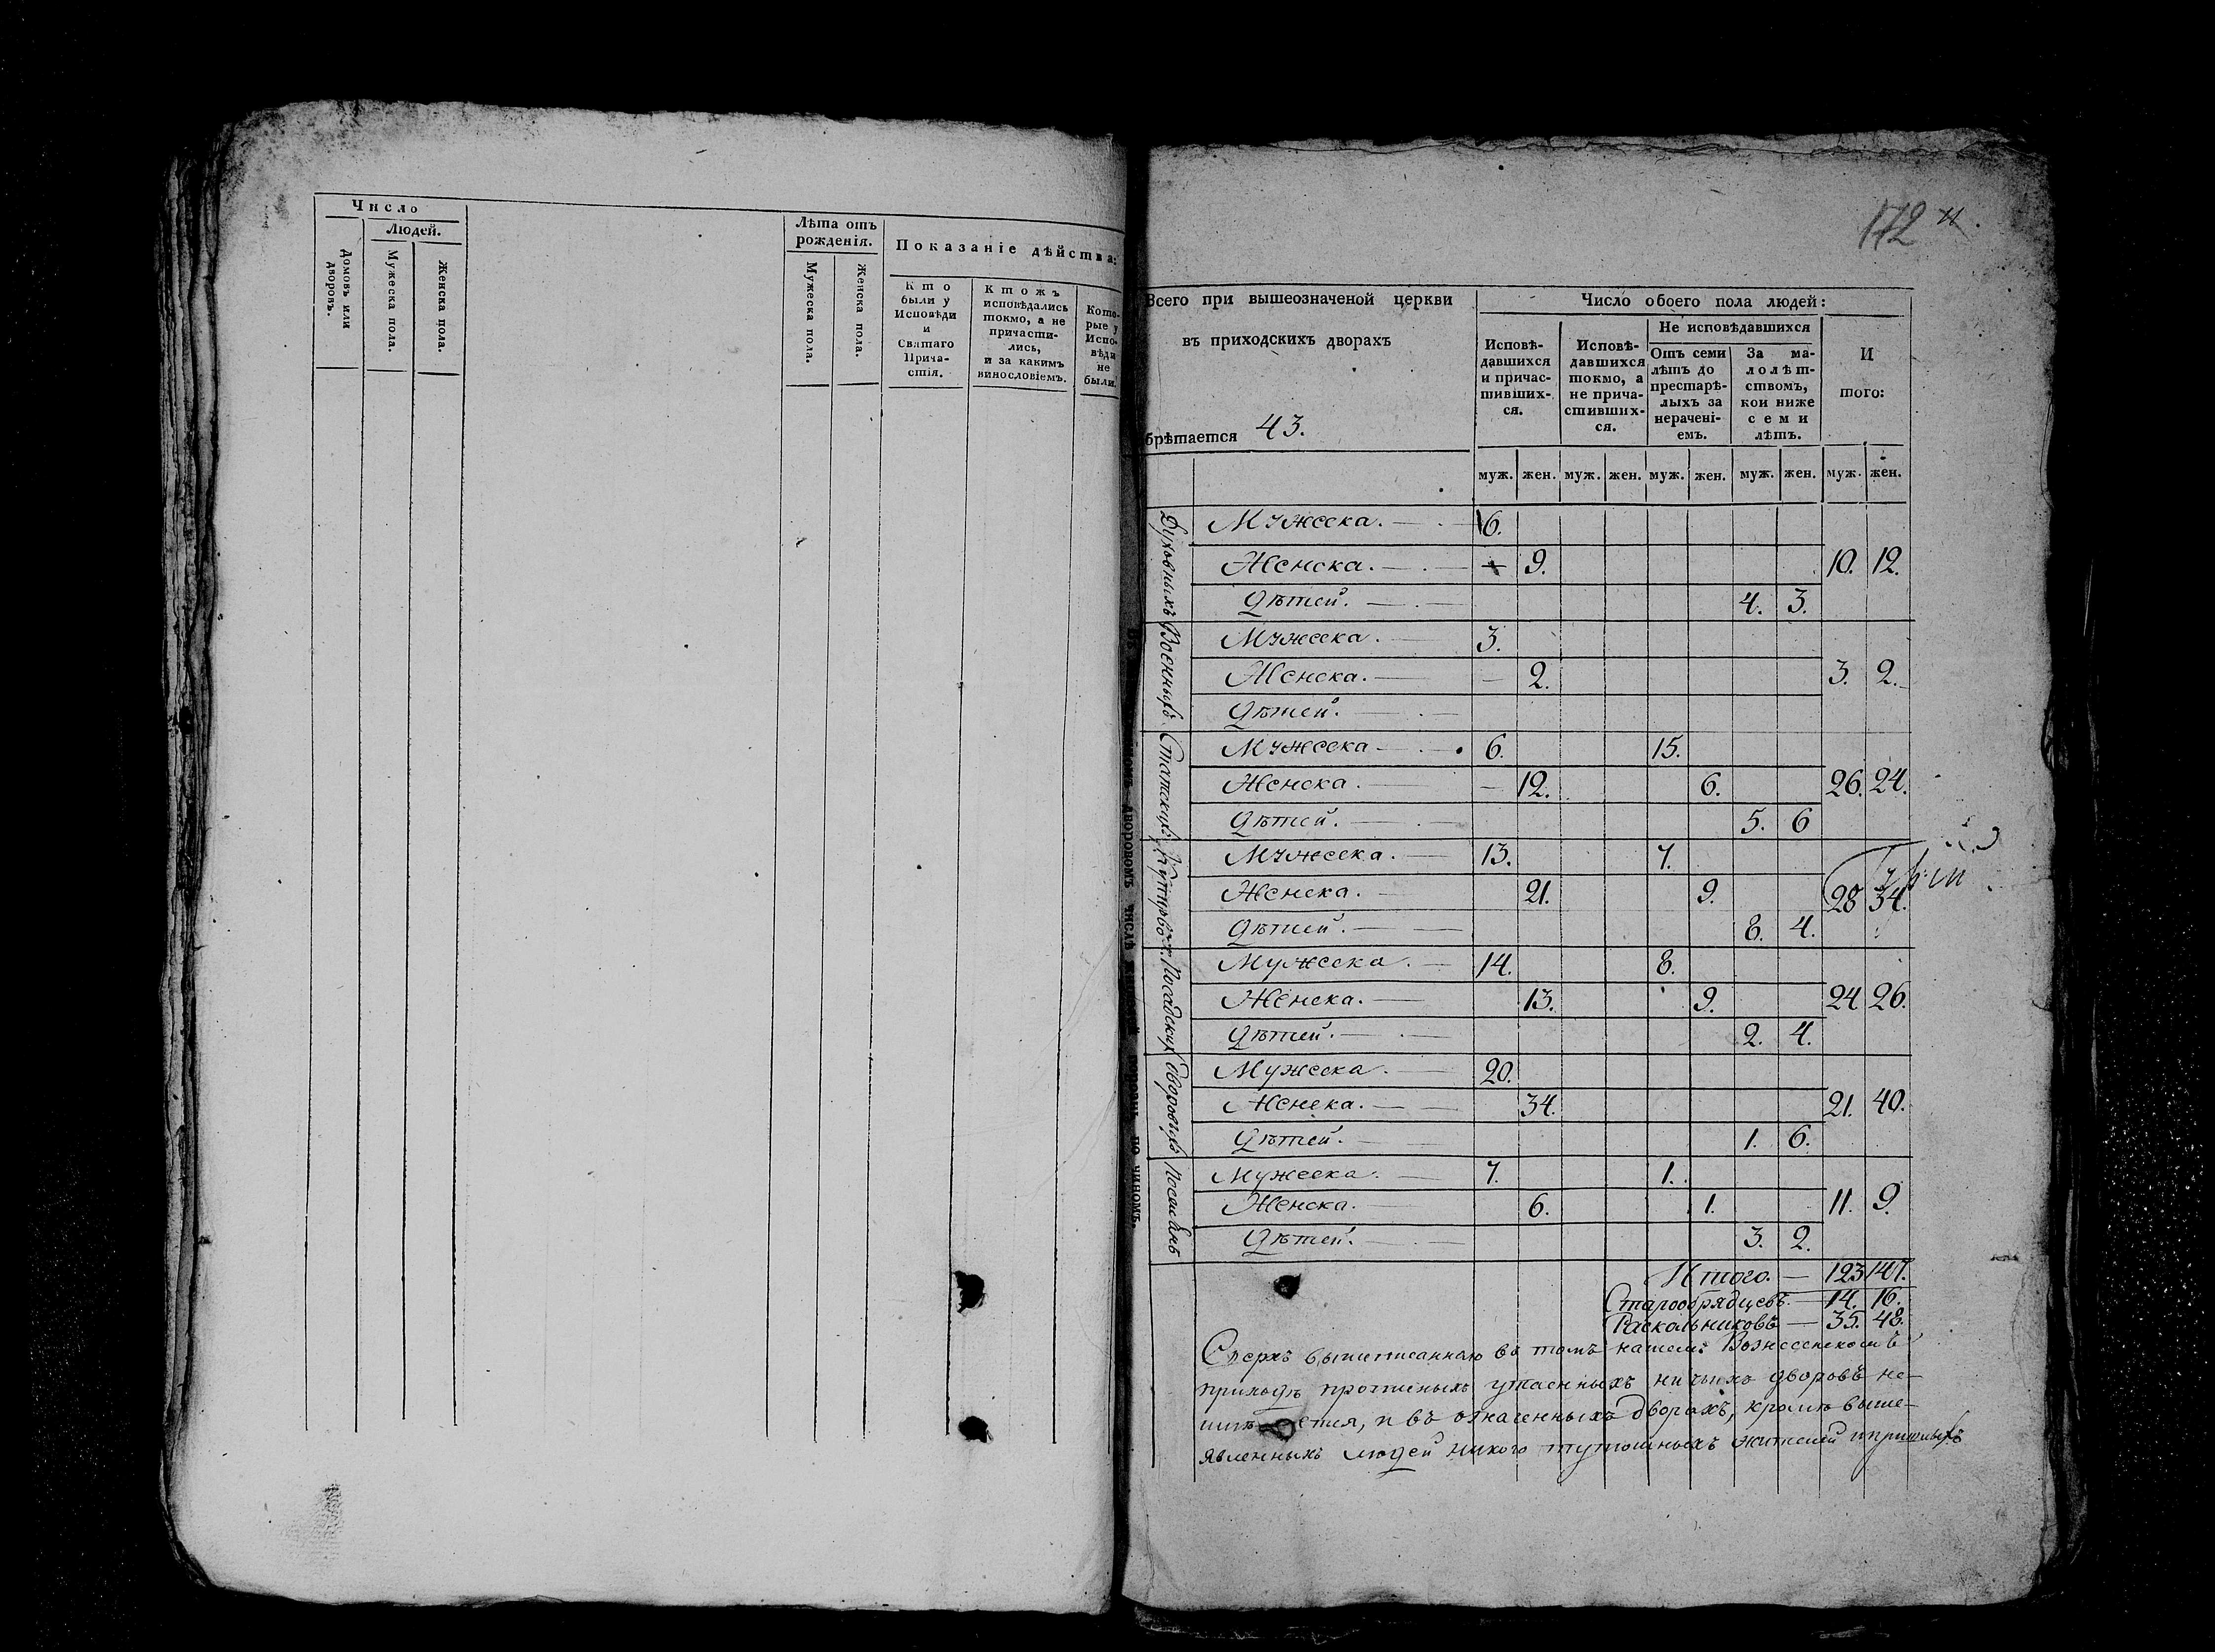 Число
Людей.
Домовъ или дворовъ.
Мужеска пола.
Женска пола.
Лѣта отъ
рожденія.
Мужеска пола.
Женска пола.
Показаніе дѣйства:
Кто
были у
Исповѣди
и
Святаго
Прича-
стія.
Ктожъ
исповѣдались
токмо, а не
причасти-
лись,
и за какимъ
винословіемъ.
Кото-
рые у
Испо-
вѣди
не
были.
172
Всего при вышеозначеной церкви
въ приходскихъ дворахъ
брѣтается 43.
Число обоего пола людей:
Исповѣ-
давшихся
и причас-
тивших-
ся.
Исповѣ-
давшихся
токмо, а
не прича-
стивших-
ся.
Не исповѣдавшихся
Отъ семи
лѣтъ до
престарѣ-
лыхъ за
нерачені-
емъ.
За ма-
лолѣт-
ствомъ,
кои ниже
семи
лѣтъ.
И
того:
муж. жен. муж. жен. муж. жен. муж. жен. муж. жен.
Духовныхъ
Мужеска. 6.
Женска. 9. 10. 12.
Дѣтей. 4. 3.
Военныхъ
Мужеска. 3.
Женска. 2. 3. 2.
Дѣтей.
Статскихъ
Мужеска 6. 15.
Женска. 12. 6. 26. 24.
Дѣтей. 5. 6
Мужеска. 13. 7.
Женска. 21. 9. 28 34.
Дѣтей. 8. 4.
Посадских
Мужеска. 14. 8.
Женска. 13. 9. 24 26.
Дѣтей. 2. 4.
Дворовыхъ
Мужеска. 20.
Женска. 34. 21. 40.
Дѣтей. 1. 6.
Поселянъ
Мужеска. 7. 1.
Женска. 6. 1. 11. 9.
Дѣтей. 3. 2.
дворовомъ числѣ
по чиномъ.
Итого. — 123 147.
Старообрядцевъ. — 14. 16.
Раскольниковъ — 35. 48.
Сверхъ вышеписаннаго въ томъ нашемъ Вознесенскомъ
приходѣ прописныхъ утаенныхъ ничьихъ дворовъ не-
имѣется, и въ означенныхъ дворахъ, кромѣ выше-
явленныхъ людей никого тутошныхъ жителей и пришлыхъ